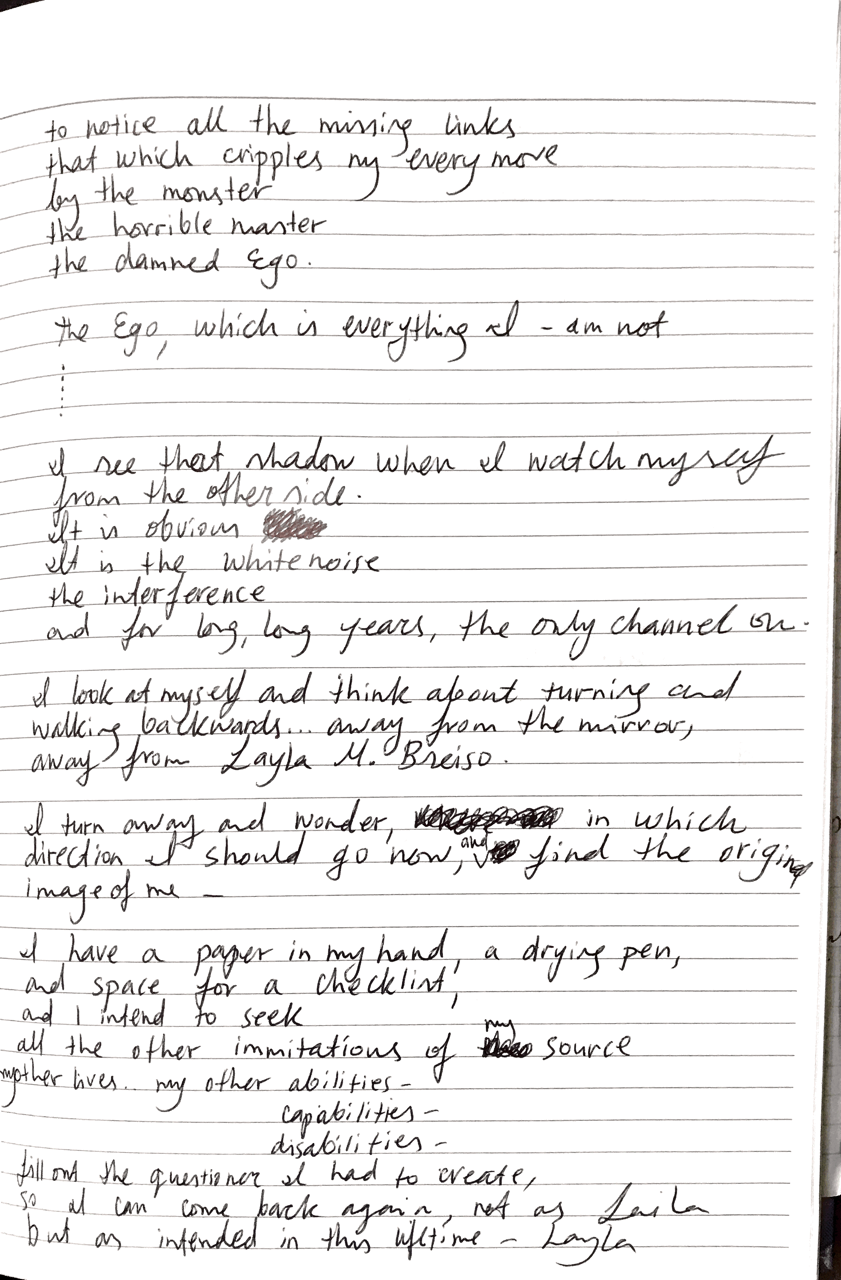 to notice all the missing links
that which cripples my every move
by the monster
the horrible master
the damned Ego.
the Ego, which is everything I - am not
I see that shadow when I watch myself
from the other side.
It is obvious
It is the white noise
the interference
and for long, long years, the only channel on.
I look at myself and think about turning and
walking backwards... away from the mirror,
away from Layla M. Breiso.
I turn away and wonder, in which
direction I should go now, and find the original
image of me –
I have a paper in my hand, a drying pen,
and space for a checklist,
and I intend to seek
all the other immitations of my source
my other lives.. my other abilities -
capabilities -
disabilities -
fill out the questioner I had to create,
so I can come back again, not as Laila
but as intended in this liftime - Layla